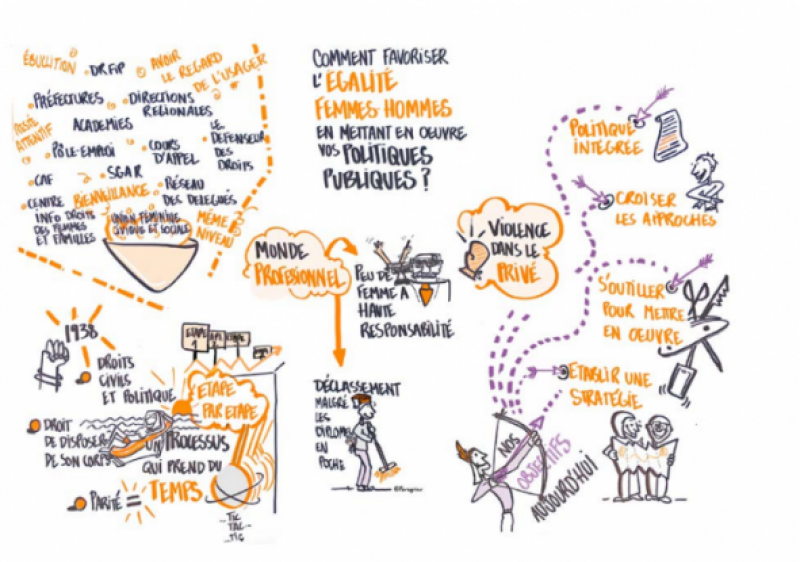 COMMENT FAVORISER
L'ÉGALITÉ
FEMMES-HOMMES
EN METTANT EN OEUVRE
VOS POLITIQUES
PUBLIQUES ?
ÉBULLITION
DRFIP
AVOIR
LE REGARD
DE L'USAGER
PRÉFECTURES
DIRECTIONS
RÉGIONALES
ATTENTIF
ACADEMIES
PÔLE-EMPLOI
COURS
D'APPEL
LE
DEFENSEUR
DES
DROITS
CAF
SGAR
CENTRE
INFO DROITS
DES FEMMES
ET FAMILLES
BIENVEILLANCE
RÉSEAU
DES DELEGUÉS
UNION FEMININE
CIVIQUE ET SOCIALE
MÊME
NIVEAU
MONDE
PROFESIONNEL
PEU DE
FEMME A
HAUTE
RESPONSABILITÉ
DÉCLASSEMENT
MALGRÉ
LES
DIPLOME
EN
POCHE
VIOLENCE
DANS LE
PRIVÉ
POLITIQUE
INTEGRÉE
CROISER
LES APPROCHES
S'OUTILLER
POUR METTRE
EN OEUVRE
ETABLIR UNE
STRATÉGIE
NOS
OBJECTIFS
AUJOURD'HUI
1938
DROITS
CIVILS
ET POLITIQUE
DROIT
DE DISPOSER
DE SON CORPS
PARITÉ =
ETAPE
1
ETAPE
PAR ETAPE
UN PROCESSUS
QUI PREND DU
TEMPS
TIC
TAC
TIC